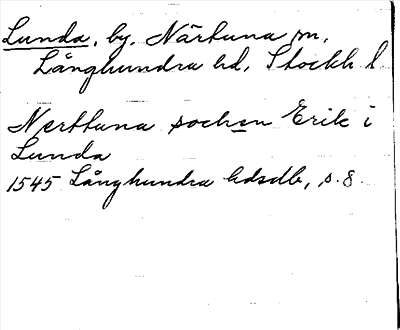 Lunda, by, Närtuna sn,
Långhundra hd, Stockh. l.
Nerttuna sochen Erik i
Lunda
1545 Långhundra hdsdb, s. 8